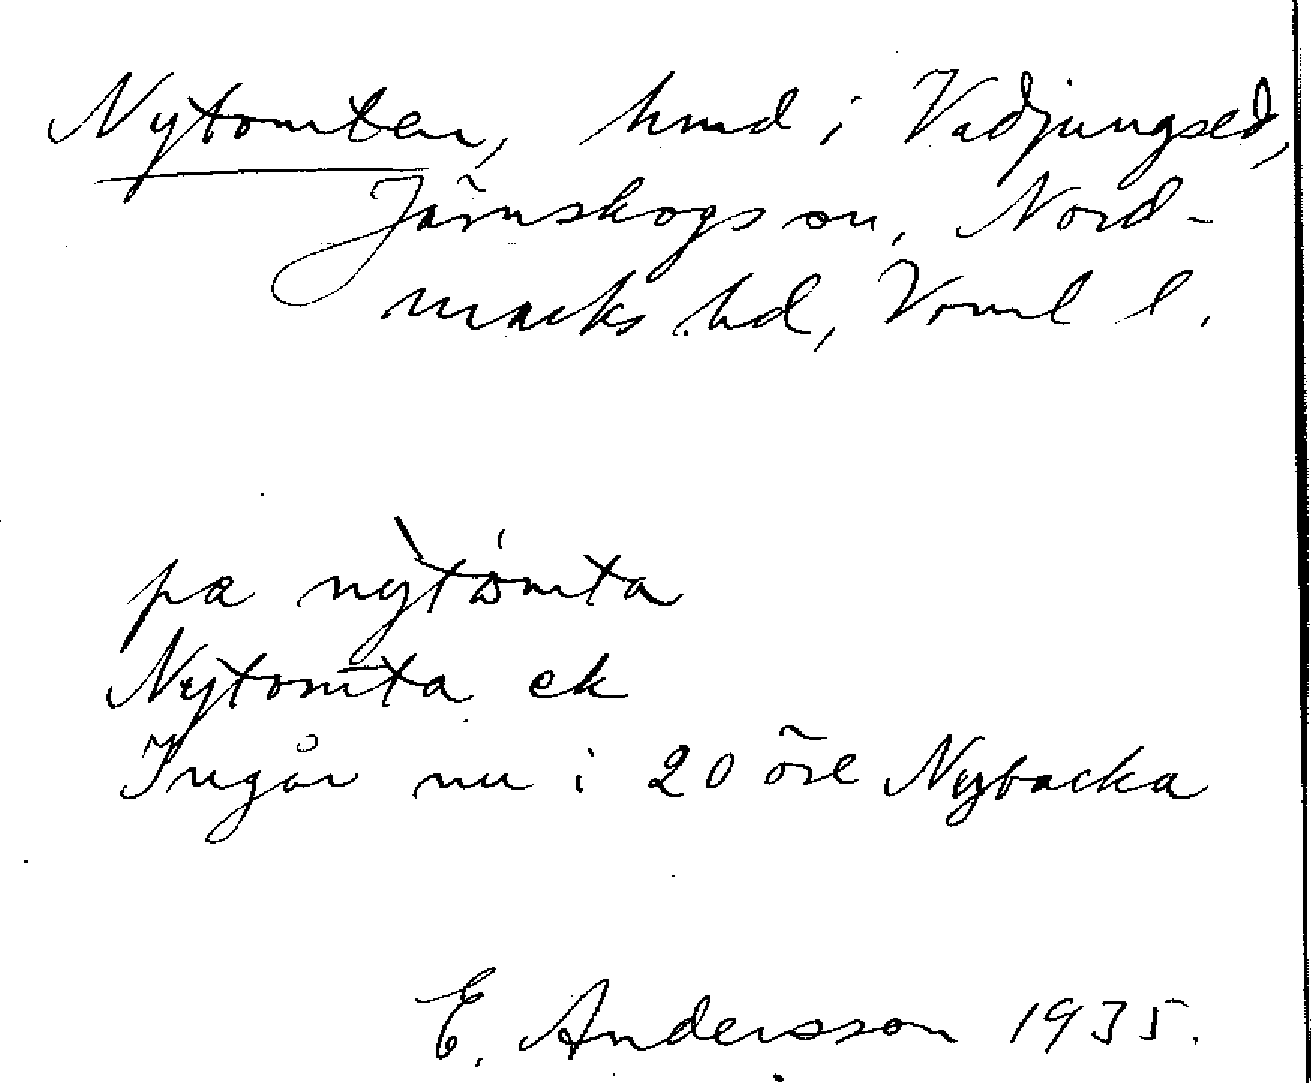 Nytomten, hmd i Vadjungsed,
Järnskogs sn, Nord-
marks hd, Vrml l.
pa nỳtómta
Nytomta ek
Ingår nu i 20 öre Nybacka
E. Andersson 1935.